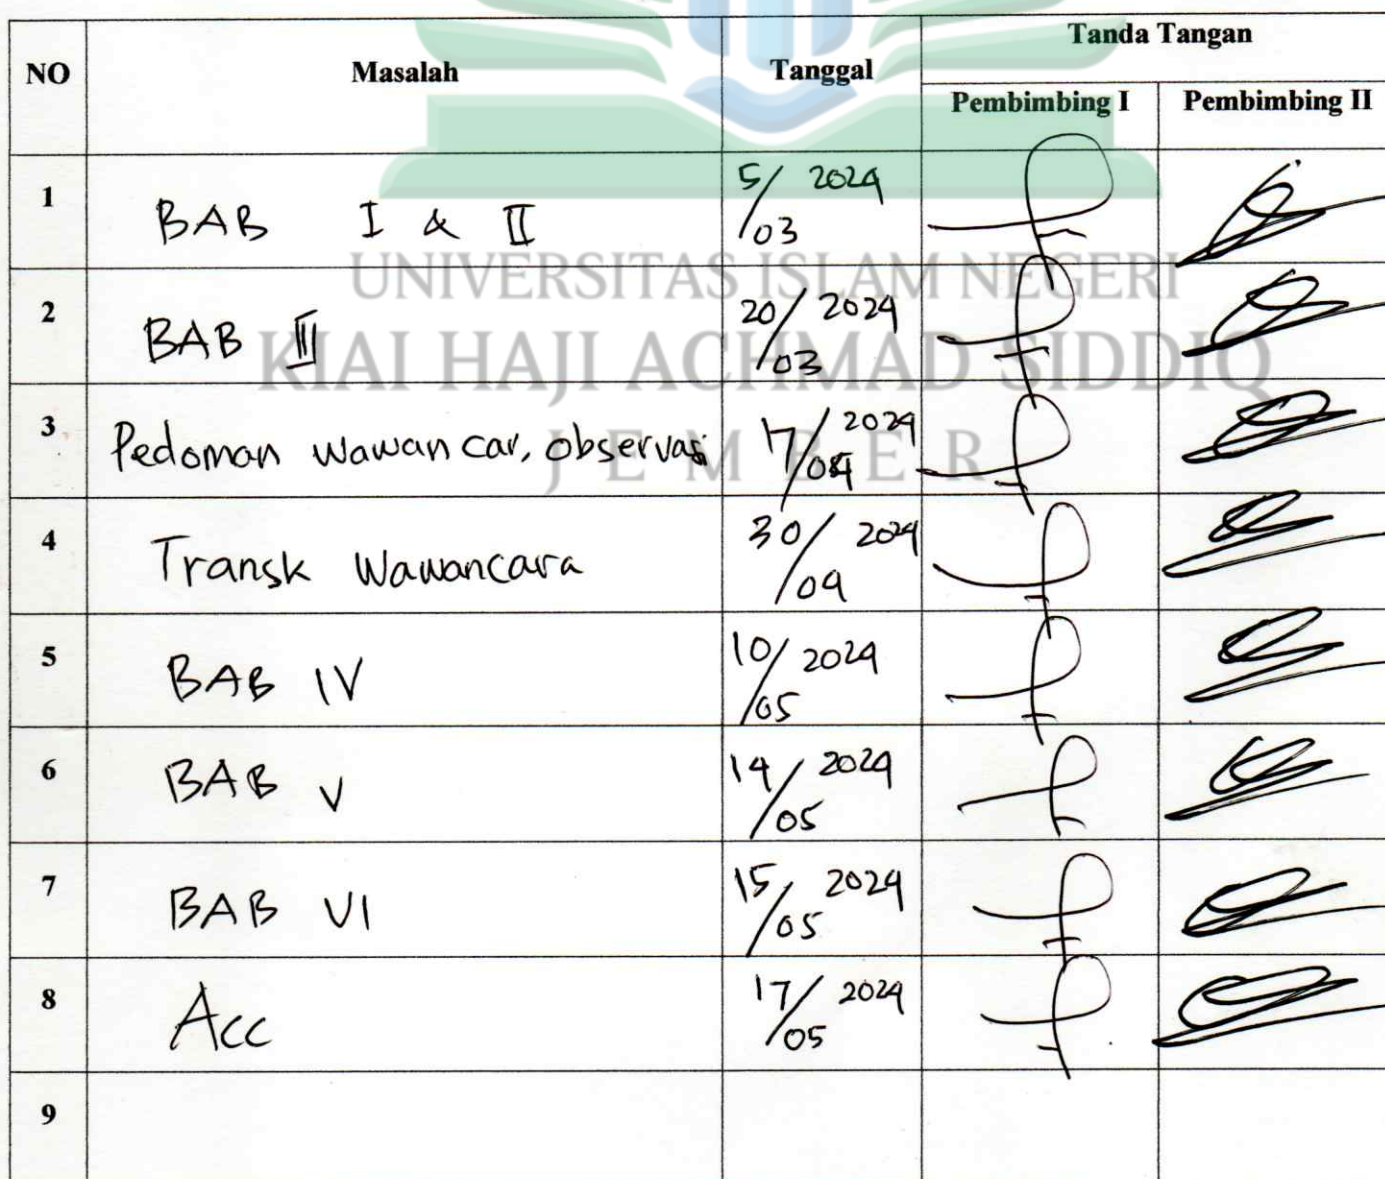 NO Masalah Tanggal Tanda Tangan
Pembimbing I Pembimbing II
1 BAB I & II 5/03 2024
2 BAB III 20/03 2024
3 Pedoman wawan car, observasi 17/04 2024
4 Transk Wawancara 30/04 2024
5 BAB IV 10/05 2024
6 BAB V 14/05 2024
7 BAB VI 15/05 2024
8 Acc 17/05 2024
9
UNIVERSITAS ISLAM NEGERI
KIAI HAJI ACHMAD SIDDIQ
JEMBER